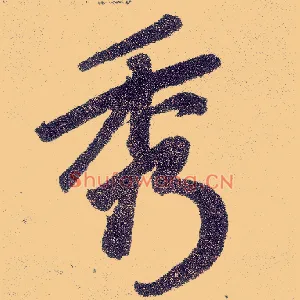 秀
Shufawang.CN